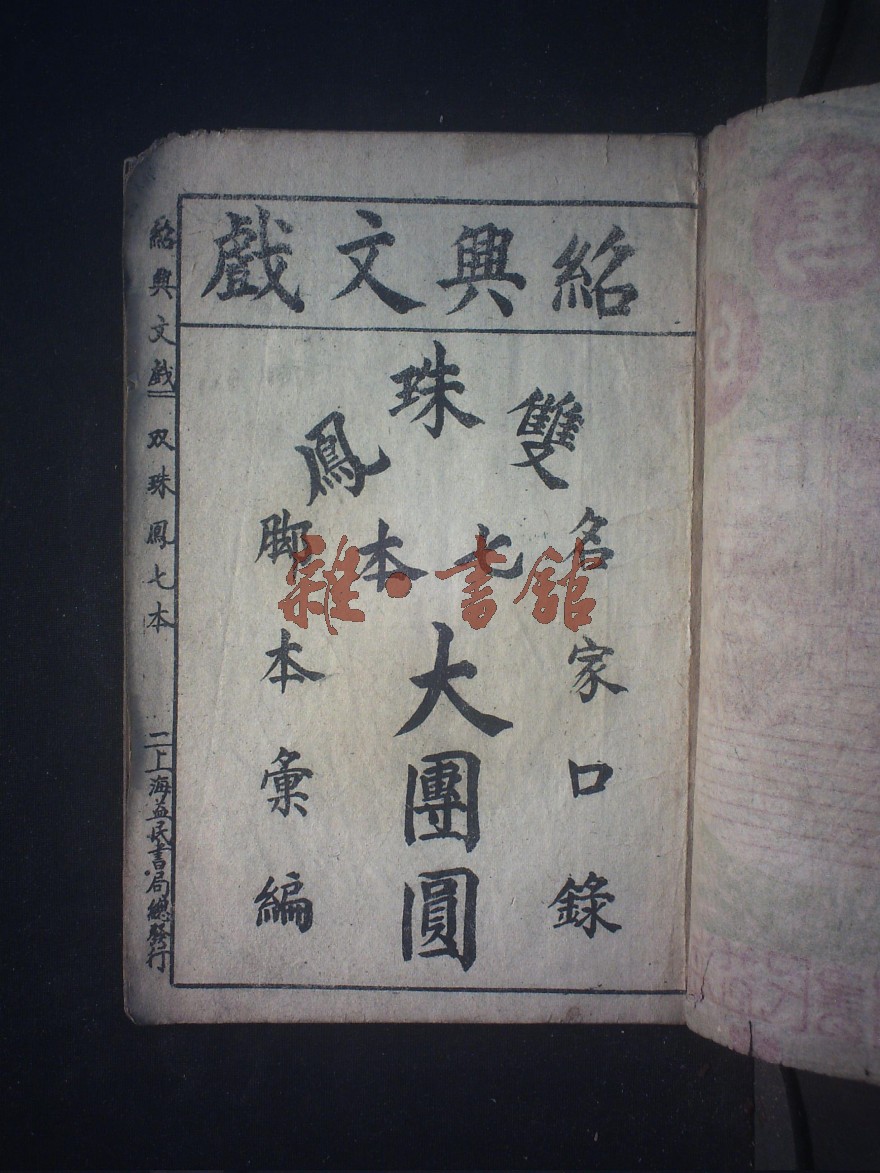 紹興文戲
雙珠鳳
七本
名家口錄
大團圓
脚本彙編
紹興文戲 双珠鳳七本 上海益民書局總發行
雜·書館